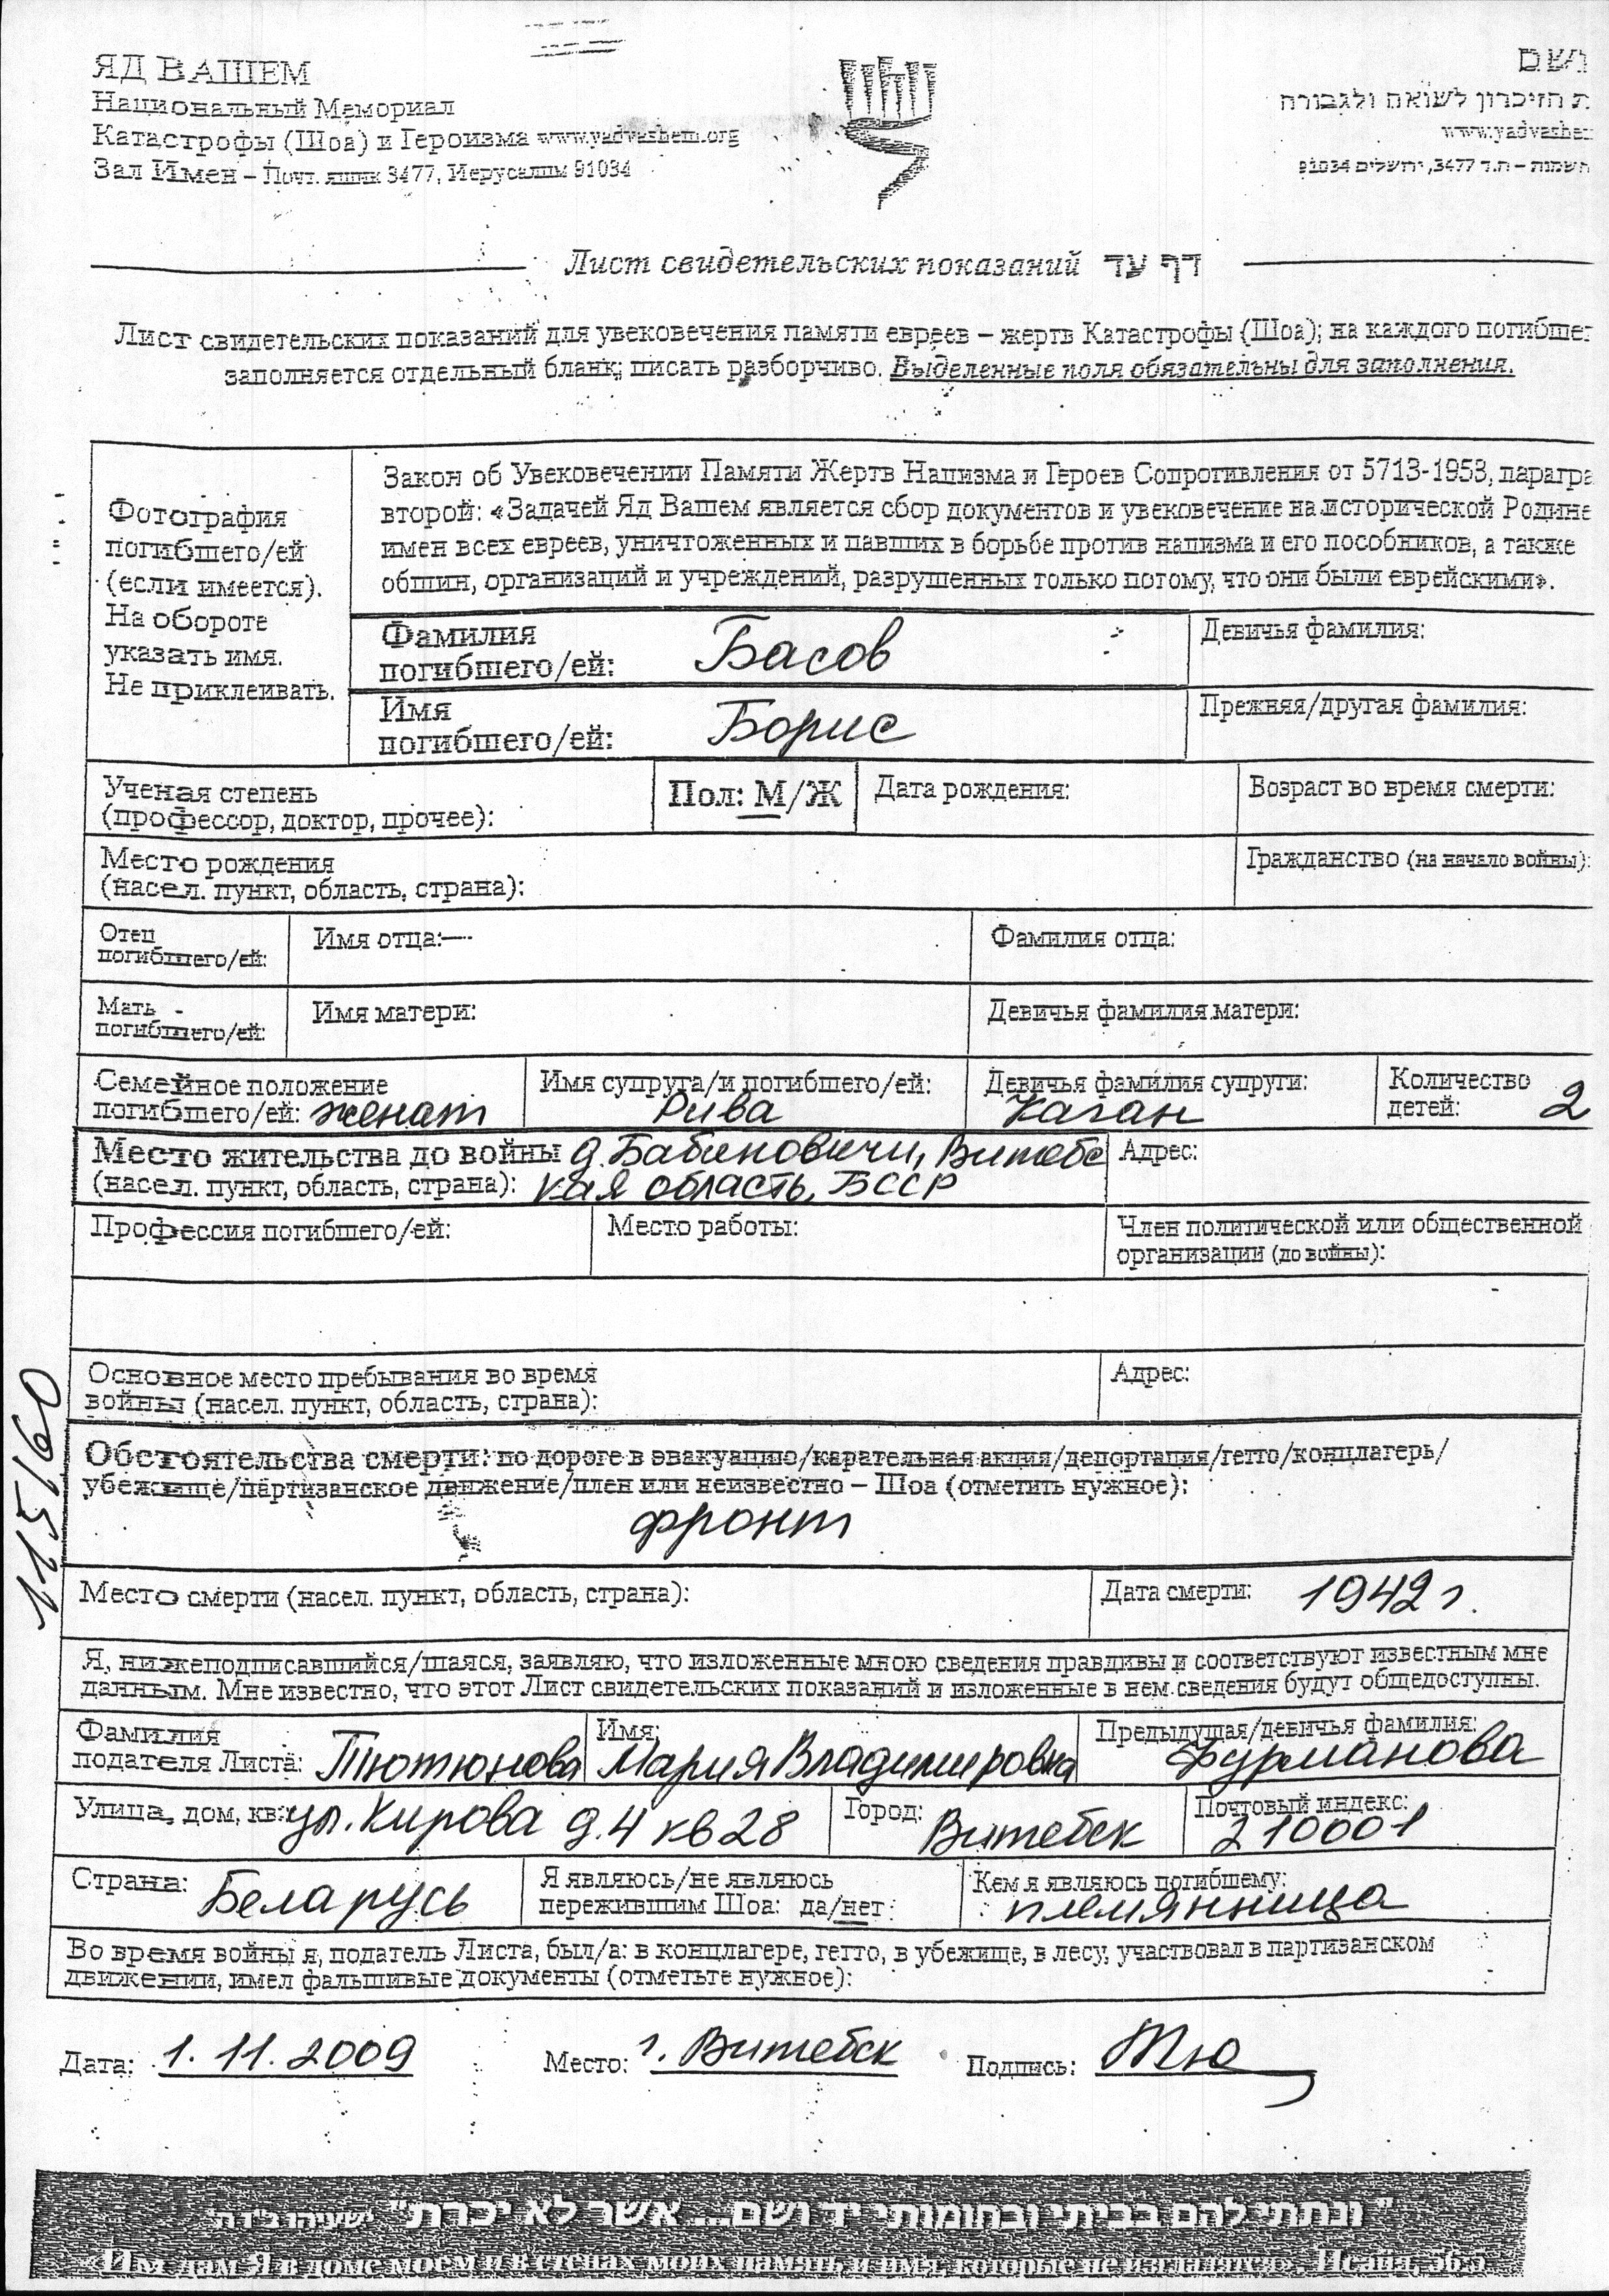 ЯД ВАШЕМ
Национальный Мемориал
Катастрофы (Шоа) и Героизма www.yadvashem.org
Зал Имен – Почт. ящик 3477, Иерусалим 91034
ושם
ת הזיכרון לשואה ולגבורה
www.yadvashem
שמות – ת.ד 3477, ירושלים 91034
Лист свидетельских показаний דף עד
Лист свидетельских показаний для увековечения памяти евреев – жертв Катастрофы (Шоа); на каждого погибшег
заполняется отдельный бланк; писать разборчиво. Выделенные поля обязательны для заполнения.
Фотография
погибшего/ей
(если имеется).
На обороте
указать имя.
Не приклеивать.
Закон об Увековечении Памяти Жертв Нацизма и Героев Сопротивления от 5713-1953, парагра
второй: «Задачей Яд Вашем является сбор документов и увековечение на исторической Родине
имен всех евреев, уничтоженных и павших в борьбе против нацизма и его пособников, а также
общин, организаций и учреждений, разрушенных только потому, что они были еврейскими».
Фамилия
погибшего/ей: Басов
Девичья фамилия:
Имя
погибшего/ей: Борис
Прежняя/другая фамилия:
Ученая степень
(профессор, доктор, прочее):
Пол: М/Ж
Дата рождения:
Возраст во время смерти:
Место рождения
(насел. пункт, область, страна):
Гражданство (на начало войны):
Отец
погибшего/ей:
Имя отца:—
Фамилия отца:
Мать
погибшего/ей:
Имя матери:
Девичья фамилия матери:
Семейное положение
погибшего/ей: женат
Имя супруга/и погибшего/ей:
Рива
Девичья фамилия супруги:
Каган
Количество
детей: 2
Место жительства до войны д. Бабиновичи, Витебс
(насел. пункт, область, страна): кая область, БССР
Адрес:
Профессия погибшего/ей:
Место работы:
Член политической или общественной
организации (до войны):
Основное место пребывания во время
войны (насел. пункт, область, страна):
Адрес:
Обстоятельства смерти: по дороге в эвакуацию/карательная акция/депортация/гетто/концлагерь/
убежище/партизанское движение/плен или неизвестно – Шоа (отметить нужное):
фронт
115160
Место смерти (насел. пункт, область, страна):
Дата смерти: 1942 г.
Я, нижеподписавшийся/шаяся, заявляю, что изложенные мною сведения правдивы и соответствуют известным мне
данным. Мне известно, что этот Лист свидетельских показаний и изложенные в нем сведения будут общедоступны.
Фамилия
подателя Листа: Тютюнова
Имя:
Мария Владимировна
Предыдущая/девичья фамилия:
Фурманова
Улица, дом, кв: ул. Кирова д. 4 кв 28
Город:
Витебск
Почтовый индекс:
210001
Страна: Беларусь
Я являюсь/не являюсь
пережившим Шоа: да/нет
Кем я являюсь погибшему:
племянница
Во время войны я, податель Листа, был/а: в концлагере, гетто, в убежище, в лесу, участвовал в партизанском
движении, имел фальшивые документы (отметьте нужное):
Дата: 1. 11. 2009 Место: г. Витебск Подпись: Тю
"ונתתי להם בביתי ובחומותי יד ושם... אשר לא יכרת" ישעיהו נ"ו ה'
«Им дам Я в доме моем и в стенах моих память и имя, которые не изгладятся». Исайя, 56:5